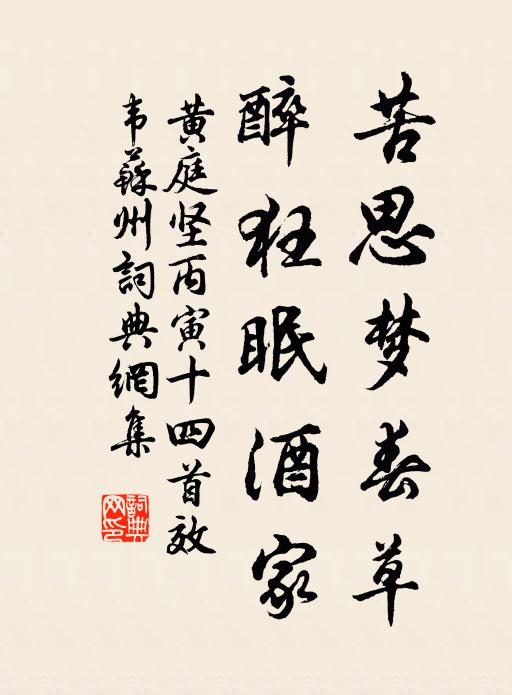 苦思梦春草
醉狂眠酒家
黄庭坚丙寅十四首效
韦蘇州詞典網集
詞典网印